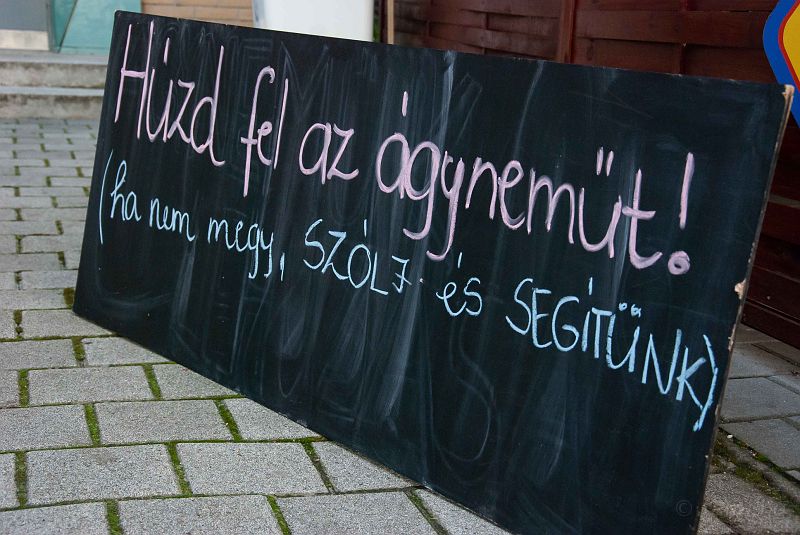 Húzd fel az ágyneműt!
(ha nem megy, SZÓLJ és SEGÍTÜNK)